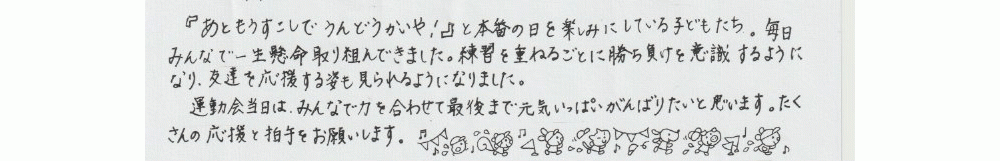 『あともうすこしで うんどうかいや!』と本番の日を楽しみにしている子どもたち。毎日
みんなで一生懸命取り組んできました。練習を重ねるごとに勝ち負けを意識するように
なり、友達を応援する姿も見られるようになりました。
運動会当日は、みんなで力を合わせて最後まで元気いっぱいがんばりたいと思います。たく
さんの応援と拍手をお願いします。